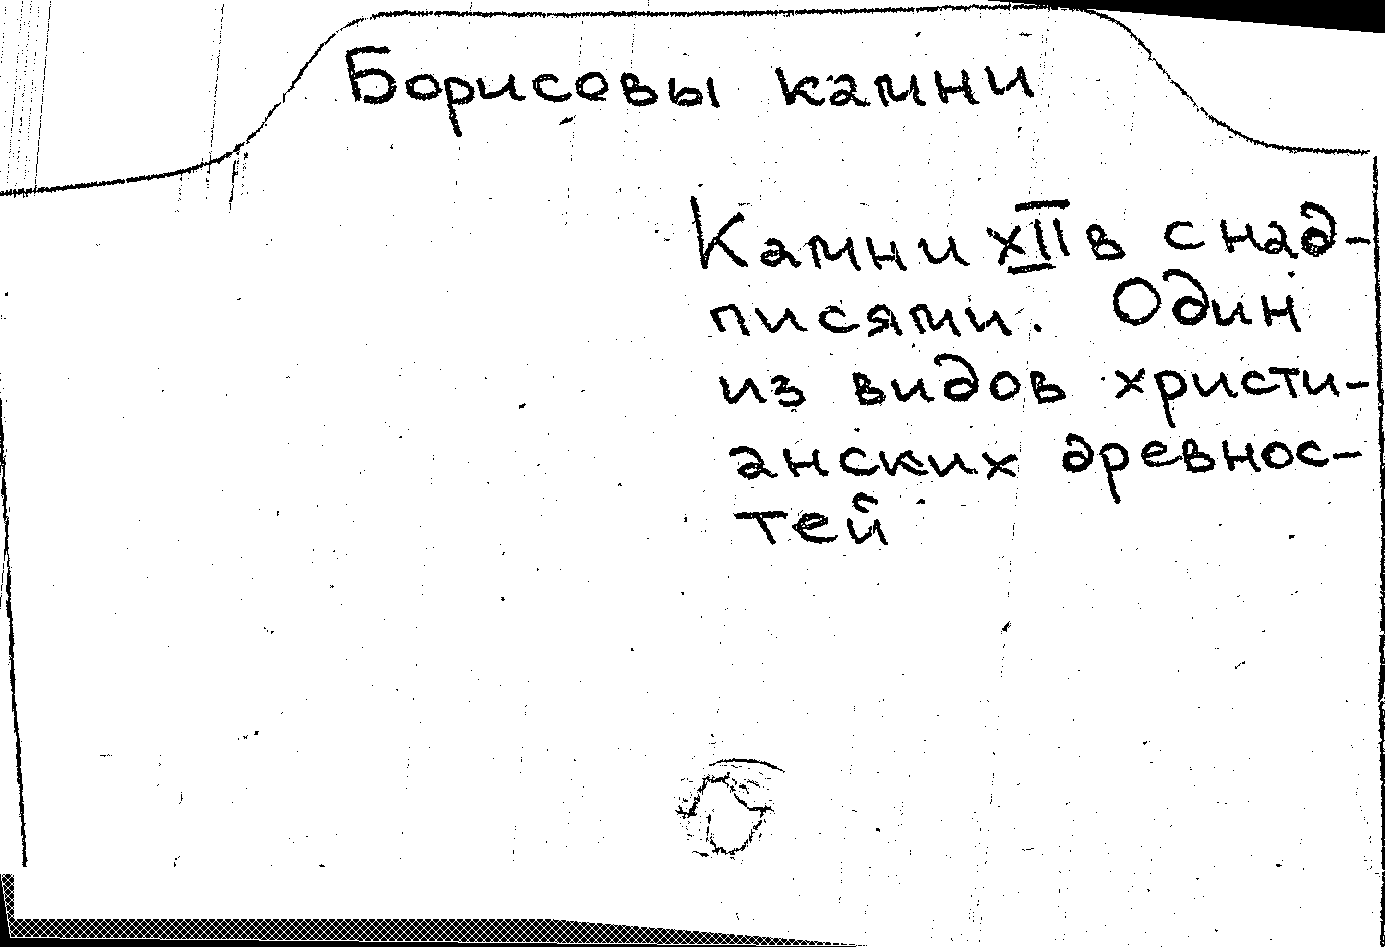 Борисовы камни
Камни XII в с над-
писями. Один
из видов христи-
анских древнос-
тей